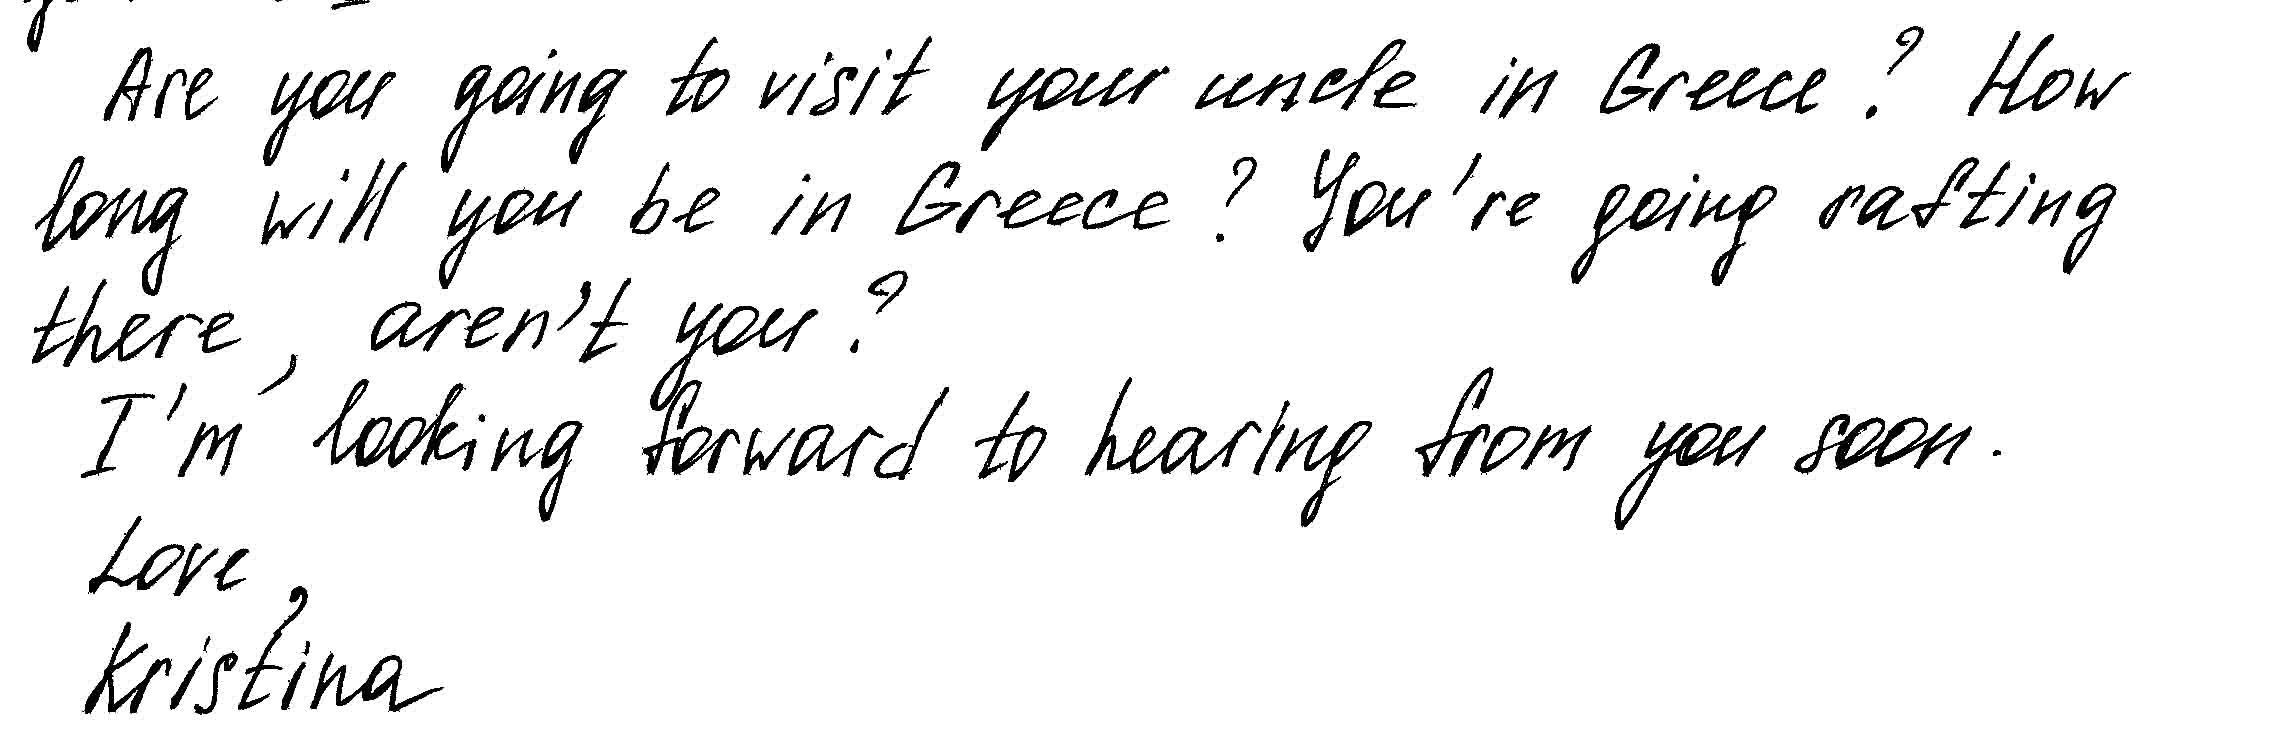 Are you going to visit your uncle in Greece? How
long will you be in Greece? You're going rafting
there, aren't you?
I'm looking forward to hearing from you soon.
Love,
Kristina